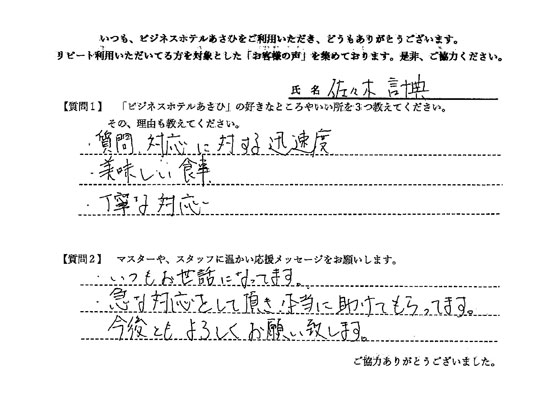 いつも、ビジネスホテルあさひをご利用いただき、どうもありがとうございます。
リピート利用いただいてる方を対象とした「お客様の声」を集めております。是非、ご協力ください。
氏 名 佐々木 計典
【質問１】 「ビジネスホテルあさひ」の好きなところやいい所を３つ教えてください。
その、理由も教えてください。
・質問 対応に対する迅速度
・美味しい食事
・丁寧な対応
【質問２】 マスターや、スタッフに温かい応援メッセージをお願いします。
・いつもお世話になってます。
・急な対応をして頂き本当に助けてもらってます。
今後ともよろしくお願い致します。
ご協力ありがとうございました。